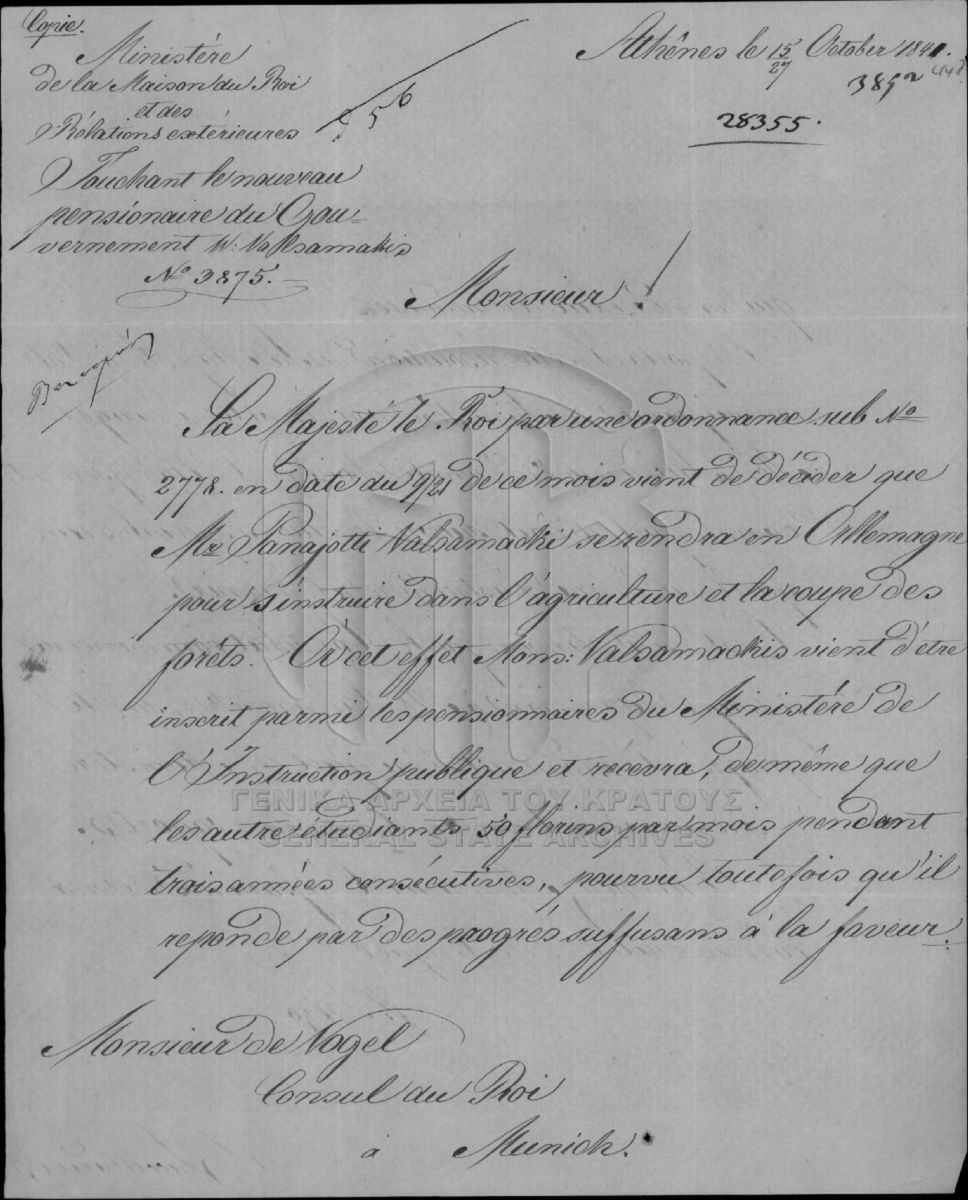 Copie.
Ministère
de la Maison du Roi
et des
Rélations extérieures
Touchant le nouveau
pensionaire du Gou-
vernement W: Valsamakis
No 3875.
Athènes le 15/27 October 1841.
3852
28355.
556
Monsieur!
Sa Majesté le Roi par une ordonnance sub No
2778. en date du 9/21 de ce mois vient de décider que
Mr Panajotti Valsamacki se rendra en Allemagne
pour s'instruire dans l'agriculture et la coupe des
forêts. A cet effet Mons: Valsamackis vient d'être
inscrit parmi les pensionnaires du Ministére de
l'Instruction publique et récevra, de même que
les autre étudiants 50 florins par mois pendant
trois années consécutives, pourvu toutefois qu'il
reponde par des progrés suffusans à la faveur.
Monsieur de Vogel
Consul du Roi
a Munich.
ΓΕΝΙΚΑ ΑΡΧΕΙΑ ΤΟΥ ΚΡΑΤΟΥΣ
GENERAL STATE ARCHIVES